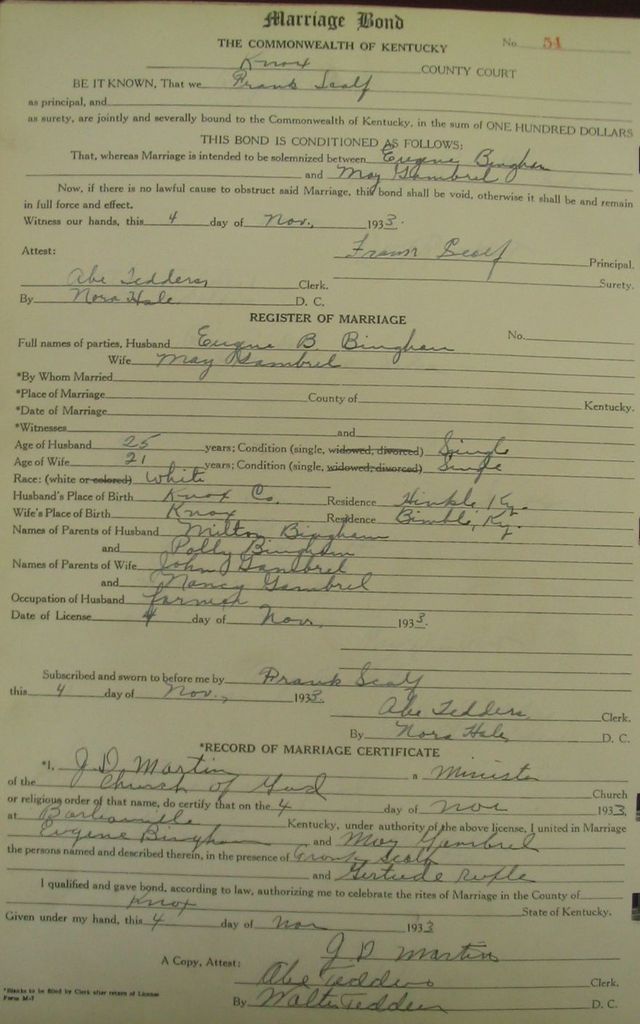 Marriage Bond
THE COMMONWEALTH OF KENTUCKY No. 54
Knox COUNTY COURT
BE IT KNOWN, That we Frank Scalf
as principal, and
as surety, are jointly and severally bound to the Commonwealth of Kentucky, in the sum of ONE HUNDRED DOLLARS
THIS BOND IS CONDITIONED AS FOLLOWS:
That, whereas Marriage is intended to be solemnized between Eugene Bingham
and May Gambrel
Now, if there is no lawful cause to obstruct said Marriage, this bond shall be void, otherwise it shall be and remain
in full force and effect.
Witness our hands, this 4 day of Nov., 1933.
Attest: Frank Scalf Principal.
Surety.
Abe Tedders Clerk.
By Nora Hale D. C.
REGISTER OF MARRIAGE
Full names of parties, Husband Eugene B Bingham No.
Wife May Gambrel
*By Whom Married
*Place of Marriage County of Kentucky.
*Date of Marriage
*Witnesses and
Age of Husband 25 years; Condition (single, widowed, divorced) Single
Age of Wife 21 years; Condition (single, widowed, divorced) Single
Race: (white or colored) White
Husband's Place of Birth Knox Co. Residence Hinkle, Ky.
Wife's Place of Birth Knox Residence Bimble, Ky.
Names of Parents of Husband Milton Bingham
and Polly Bingham
Names of Parents of Wife John Gambrel
and Nancy Gambrel
Occupation of Husband farmer
Date of License 4 day of Nov. 1933.
Subscribed and sworn to before me by Frank Scalf
this 4 day of Nov., 1933.
Abe Tedders Clerk.
By Nora Hale D. C.
*RECORD OF MARRIAGE CERTIFICATE
*I, J. D. Martin a Minister
of the Church of God Church
or religious order of that name, do certify that on the 4 day of Nov 1933,
at Barbourville Kentucky, under authority of the above license, I united in Marriage
Eugene Bingham and May Gambrel
the persons named and described therein, in the presence of Frank Scalf
and Gertrude
I qualified and gave bond, according to law, authorizing me to celebrate the rites of Marriage in the County of
Knox State of Kentucky.
Given under my hand, this 4 day of Nov 1933
J D Martin
A Copy, Attest: Abe Tedders Clerk.
By Walter Tedders D. C.
*Blanks to be filled by Clerk after return of License
Form M-7